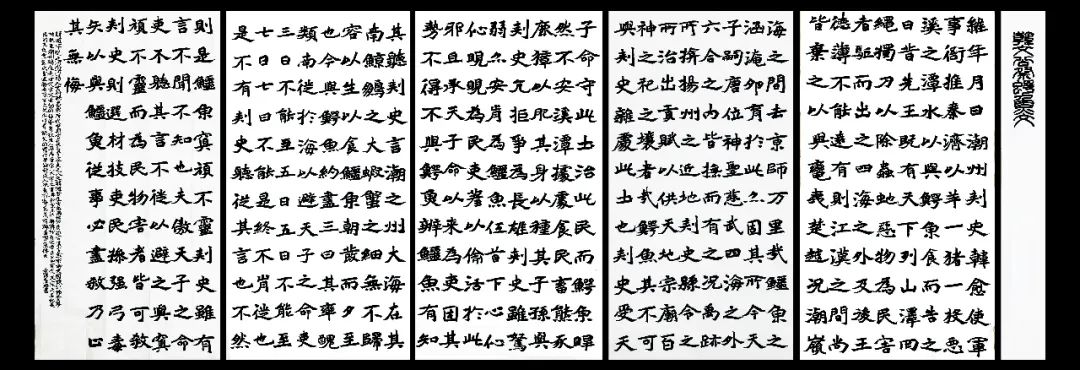 韓文公祭鱷魚文
維年月日潮州刺史韓愈使軍
事衙推秦濟以羊一豬一投惡
溪之潭水以與鱷魚食而告之
曰昔先王既有天下列山澤罔
繩獨刃以除蟲蛇惡物為民害
者驅而出之四海之外及後王
德薄不能遠有則江漢之間尚
皆棄之以與蠻夷楚越況潮嶺
海之間去京師万里哉鱷魚之
涵淹卵育於此亦固其所今天
子嗣唐位神聖慈武四海之外
六合之內皆撫而有之況禹跡
所揜揚州之近地刺史縣令之
所治出貢賦以供天地宗廟百
神之祀之壤者哉鱷魚其不可
與刺史雜處此土也刺史受天
子命守此土治此民而鱷魚睅
然不安溪潭據處食民畜熊豕
鹿獐以肥其身以種其子孫與
刺史亢拒爭為長雄刺史雖駑
弱亦安肯為鱷魚低首下心伈
伈睍睍為民吏羞以偷活於此
邪且承天子命以來為吏固其
勢不得不與鱷魚辨鱷魚有知
其聽刺史言潮之州大海在其
南鯨鵬之大蝦蟹之細無不歸
容以生以食鱷魚朝發而夕至
也今與鱷魚約盡三日其率醜
類南徙於海以避天子之命吏
三日不能至五日五日不能至
七日七日不能是終不肯徙也
是不有刺史聽從其言也不然
則是鱷魚冥頑不靈刺史雖有
言不聞不知也夫傲天子之命
吏不聽其言不徙以避之與冥
頑不靈而為民物害者皆可殺
刺史則選材技吏民操強弓毒
矢以與鱷魚從事必盡殺乃止
其無悔